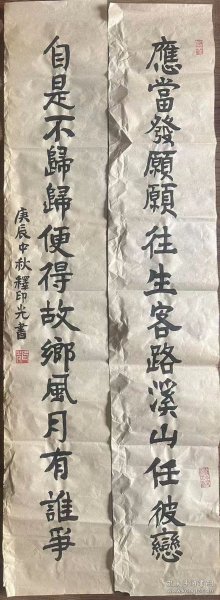 應當發願願往生客路溪山任彼戀
自是不歸歸便得故鄉風月有誰爭
庚辰中秋釋印光書